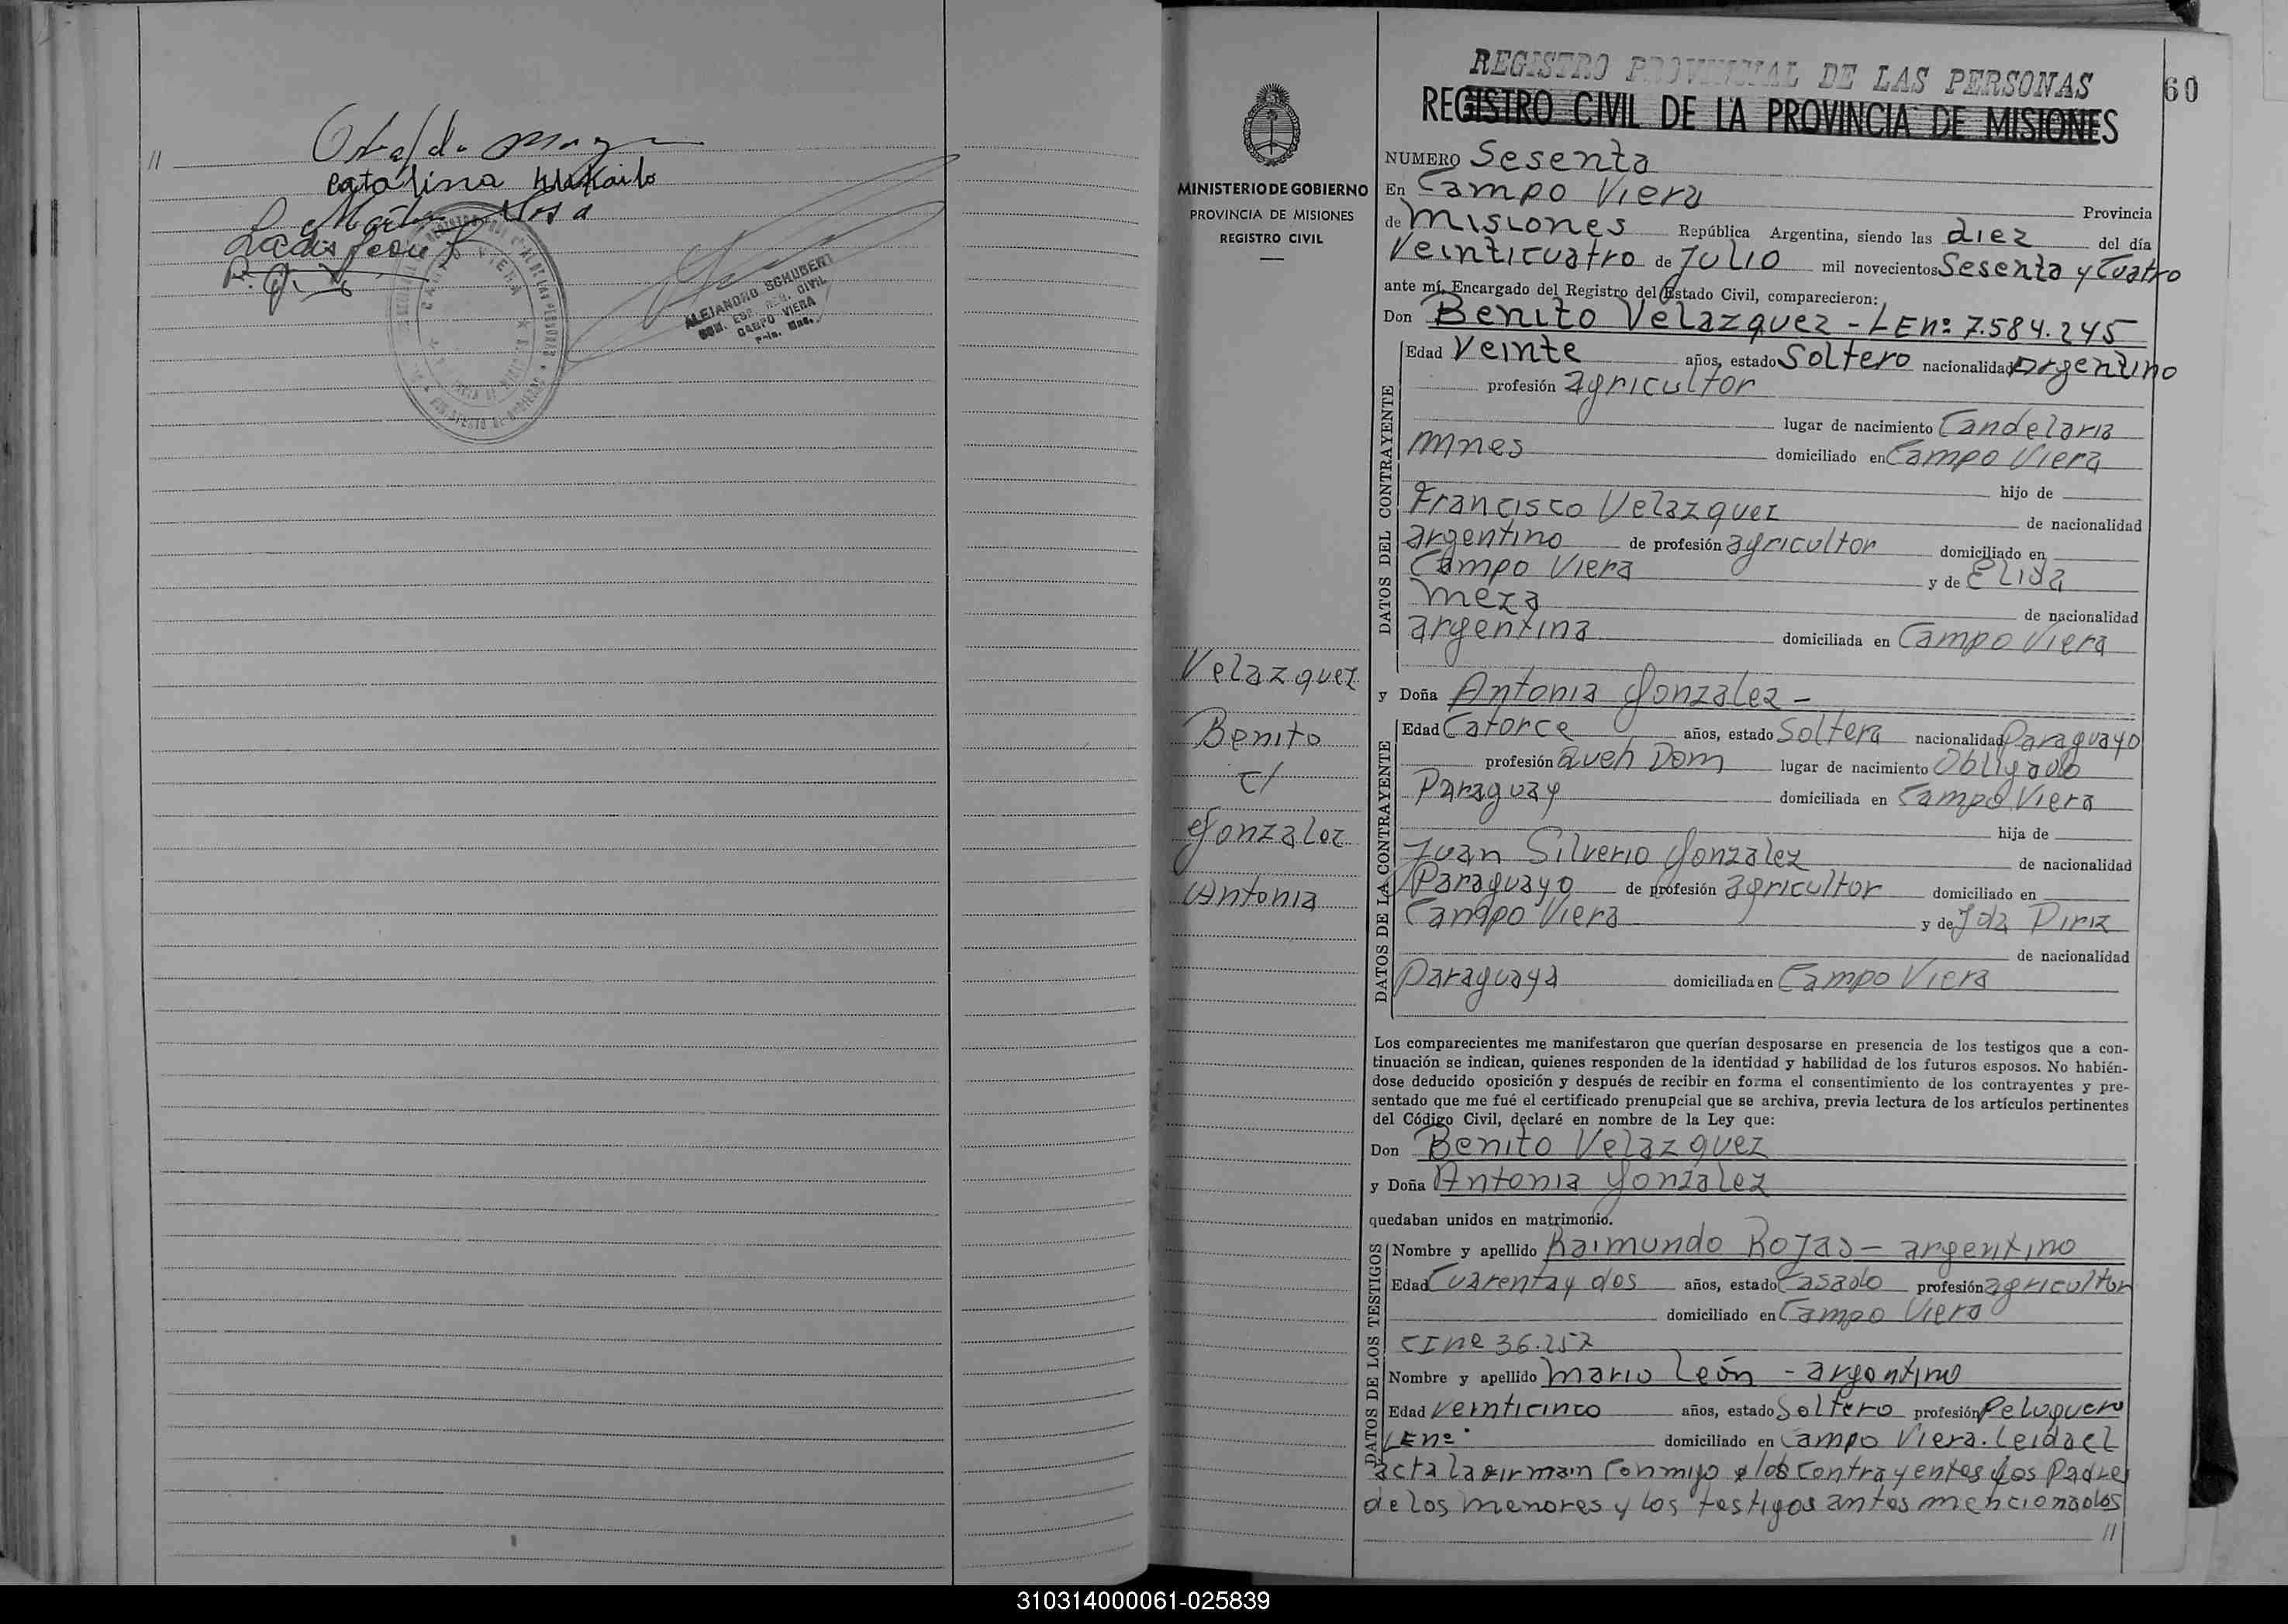 //
Catalina
ALEJANDRO SCHUBERT
CAMPO VIERA
REGISTRO PROVINCIAL DE LAS PERSONAS
60
REGISTRO CIVIL DE LA PROVINCIA DE MISIONES
MINISTERIO DE GOBIERNO
PROVINCIA DE MISIONES
REGISTRO CIVIL
Velazquez
Benito
c/
Gonzalez
Antonia
NUMERO Sesenta
En Campo Viera Provincia
de Misiones República Argentina, siendo las diez del día
Veinticuatro de Julio mil novecientos Sesenta y Cuatro
ante mí, Encargado del Registro del Estado Civil, comparecieron:
Don Benito Velazquez - LEnº 7.584.245
DATOS DEL CONTRAYENTE
Edad Veinte años, estado Soltero nacionalidad Argentino
profesión agricultor
lugar de nacimiento Candelaria
Mnes domiciliado en Campo Viera
hijo de
Francisco Velazquez de nacionalidad
argentino de profesión agricultor domiciliado en
Campo Viera y de Elida
Meza de nacionalidad
argentina domiciliada en Campo Viera
y Doña Antonia Gonzalez -
DATOS DE LA CONTRAYENTE
Edad Catorce años, estado Soltera nacionalidad Paraguayo
profesión Queh Dom lugar de nacimiento Obligado
Paraguay domiciliada en Campo Viera
hija de
Juan Silverio Gonzalez de nacionalidad
Paraguayo de profesión agricultor domiciliado en
Campo Viera y de Ida Piriz
de nacionalidad
Paraguaya domiciliada en Campo Viera
Los comparecientes me manifestaron que querían desposarse en presencia de los testigos que a con-
tinuación se indican, quienes responden de la identidad y habilidad de los futuros esposos. No habién-
dose deducido oposición y después de recibir en forma el consentimiento de los contrayentes y pre-
sentado que me fué el certificado prenupcial que se archiva, previa lectura de los artículos pertinentes
del Código Civil, declaré en nombre de la Ley que:
Don Benito Velazquez
y Doña Antonia Gonzalez
quedaban unidos en matrimonio.
DATOS DE LOS TESTIGOS
Nombre y apellido Raimundo Rojas - argentino
Edad Cuarenta y dos años, estado Casado profesión agricultor
domiciliado en Campo Viera
CI nº 36.257
Nombre y apellido Mario León - argentino
Edad Veinticinco años, estado Soltero profesión Peluquero
LEnº domiciliado en Campo Viera. Leida el
acta la firman conmigo los contrayentes los Padres
de los menores y los testigos antes mencionados
//
310314000061-025839